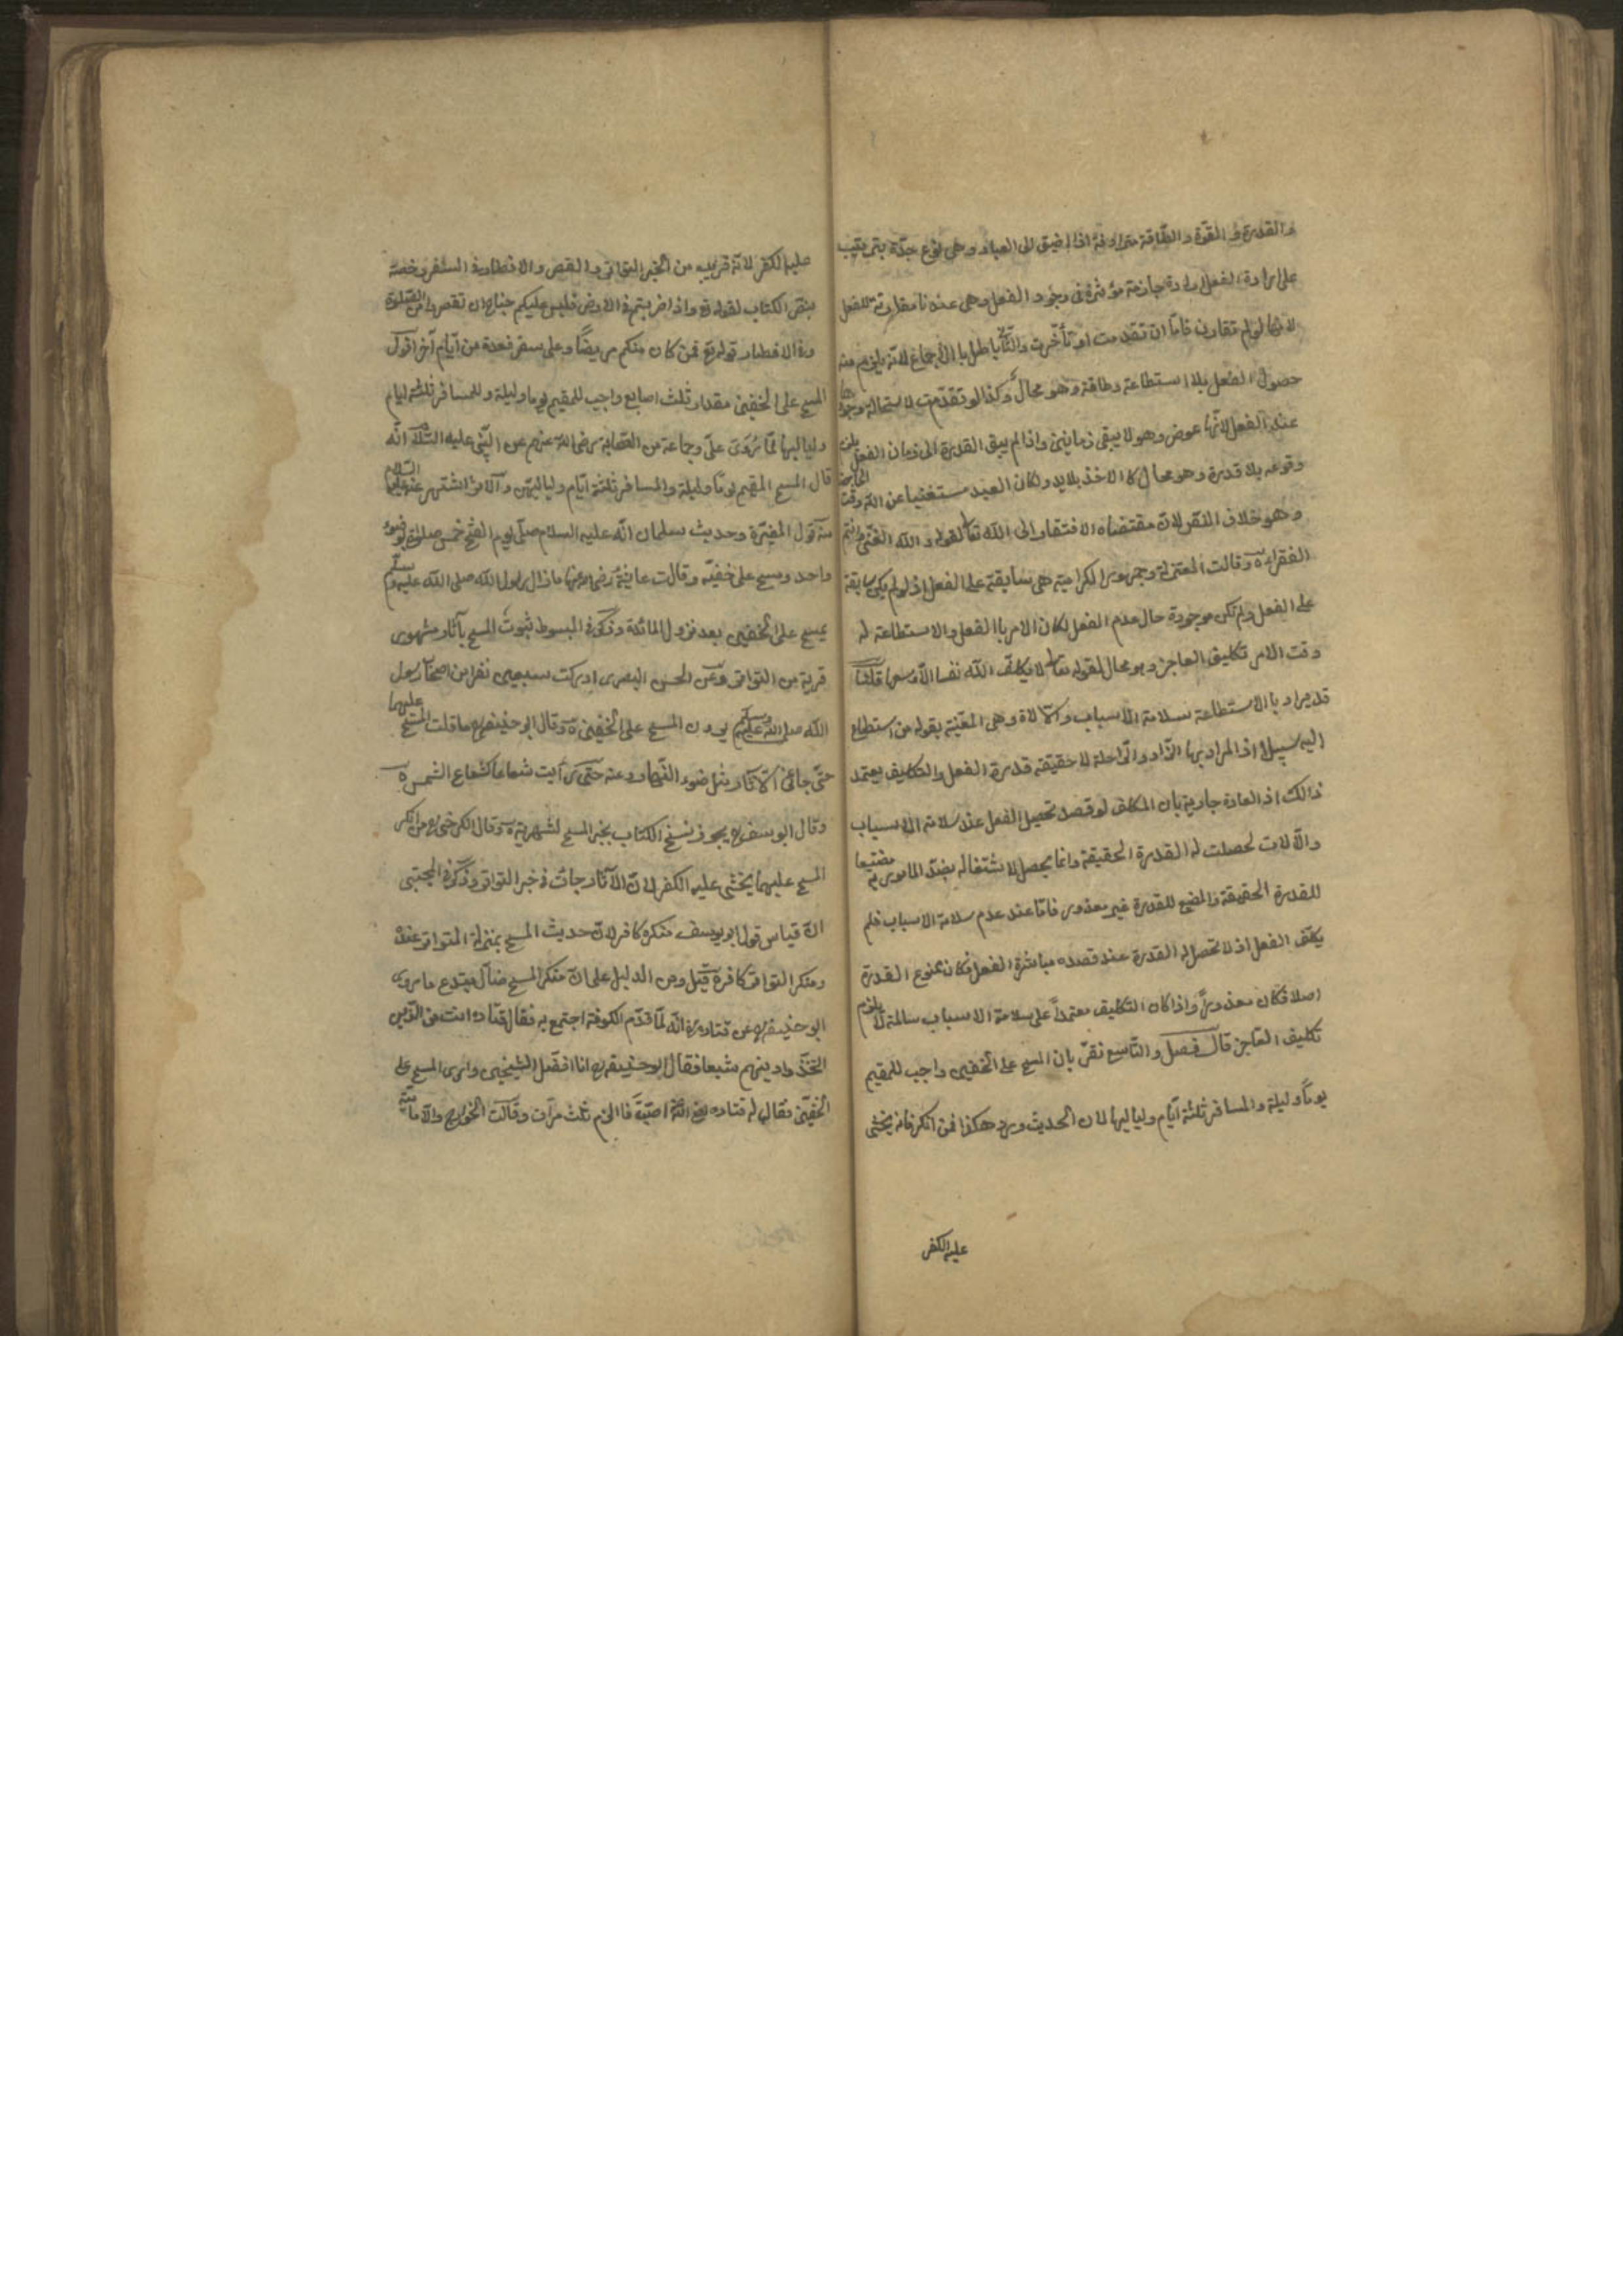 والقدرة والقوة والطاقة مترادفة اذا اضيق الى العباد وهى نوع جدّة يترتيب
على ارادة الفعل ارادة جازمة مؤثرة فى وجود الفعل وهى عندنا مقارنة للفعل
لانها لو لم تقارن فامّا ان تقدمت او تأخّرت والثانى باطل باالأجماع لانّه يلزم منه
حصول الفعل بلا استطاعة وطاقة وهو محالٌ وكذا لو تقدّمت لاستحالة وجودها
عند الفعل لانّها عرض وهو لا يبقى زمانين واذا لم يبق القدرة الى زمان الفعل يلزم
وقوعه بلا قدرة وهو محال كالاخذ بلا يد ولكان العبد مستغنيا عن الله وقت
وهو خلاف النقر لانّ مقتضاه الافتقار الى الله تعالى لقوله والله الغنىّ وانتم
الفقراء وقالت المعتزلة وجمهور الكرامية هى سابقة على الفعل اذ لو لم يكن سابقة
على الفعل ولم تكن موجودة حال عدم الفعل لكان الامر باالفعل والاستطاعة له
وقت الامر تكليف العاجز وهو محال لقوله تعالى لا يكلف الله نفسا الّا وسعها قلنا
قد يراد باالاستطاعة سلامة الاسباب والآلاة وهى المعّنية بقوله من استطاع
اليه سبيلا اذ المراد بها الزّاد والرّاحلة لا حقيقة قدرة الفعل والتكليف يعتمد
ذالك اذ العادة جارية بان المكلف لو قصد تحصيل الفعل عند سلامة الاسباب
والآلات لحصلت له القدرة الحقيقة وانما يحصل لاشتغاله بضدّ المامور به مضيّعا
للقدرة الحقيقة والمضيع للقدرة غير معذور فامّا عند عدم سلامة الاسباب فلم
يكلّف الفعل اذ لا تحصل له القدرة عند قصده مباشرة الفعل فكان ممنوع القدرة
اصلا فكان معذورًا واذا كان التكليف معتمدًا على سلامة الاسباب سالمة لا يلزم
تكليف العاجز قال فصل والتّاسع نقرّ بان المسح على الخفين واجب للمقيم
يومًا وليلة والمسافر ثلثة ايّام ولياليها لان الحديث ورد هكذا فمن انكر فانه يخشى
عليه الكفر
عليه الكفر لانّه قريب من الخبر المتواتر والقصر والافطار فى السفر رخصة
بنصّ الكتاب لقوله تع واذا ضربتم فى الارض فليس عليكم جناح ان تقصروا من الصّلوة
وفى الافطار قوله تع فمن كان منكم مريضًا وعلى سفر فعدة من ايّام آخر اقول
المسح على الخفين مقدار ثلث اصابع واجب للمقيم يوما وليلة وللمسافر ثلثة ايام
ولياليها لمّا رُوىَ علىّ وجماعة من الصّحابة رضى الله عنهم عن النّبى عليه السّلام انّه
قال المسح المقيم يومًا وليلة والمسافر ثلثة ايّام ولياليهن والآثار اشتهر عنه عليه السلام
منه قول المغيرة وحديث سلمان انّه عليه السلام صلّى يوم الفتح خمس صلوة بوضوء
واحد ومسح على خفيّه وقالت عايشة رضى الله عنها ما زال رسول الله صلى الله عليه وسلم
يمسح على الخفين بعد نزول المائدة وذكر فى المبسوط ثبوت المسح بآثار مشهور
قريبة من التواتر وعن الحسن البصرى ادركت سبعين نفرا من اصحاب رسول
الله صلى الله عليه وسلم يرون المسح على الخفين وقال ابو حنيفه ره ما قلت المسح عليهما
حتّى جاءنى الآثار مثل ضوء النّهار وعنه حتى رأيت شعاعا كشعاع الشمس
وقال ابو يوسف ره يجوز نسخ الكتاب بخبر المسح لشهرته وقال الكرخى ره من انكر
المسح عليهما يخشى عليه الكفر لانّ الآثار جائت فى خبر التواتر وذكر فى المجتبى
انّ قياس قول ابو يوسف منكره كافر لانّ حديث المسح بمنزلة المتواتر عنده
ومنكر التواتر كافره قيل ومن الدليل على انّ منكر المسح ضالّ مبتدع ما روى
ابو حنيفه ره عن قتاده انّه لمّا قدّم الكوفة اجتمع به فقال قتاده انت من الذين
اتّخذوا دينهم شيعا فقال ابو حنيفه ره انا افضّل الشيخين وارى المسح على
الخفيّن فقال له قتاده اصبتَ فاالزم ثلث مرّات وقالت الخوارج والاماميّة